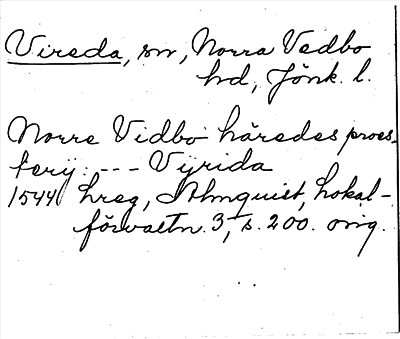 Vireda, sn, Norra Vedbo
hd, Jönk. l.
Norre Vidbo häredes proes-
terij: --- Vijrida
1544 hreg, Almquist, Lokal-
förvaltn. 3, s. 200. orig.